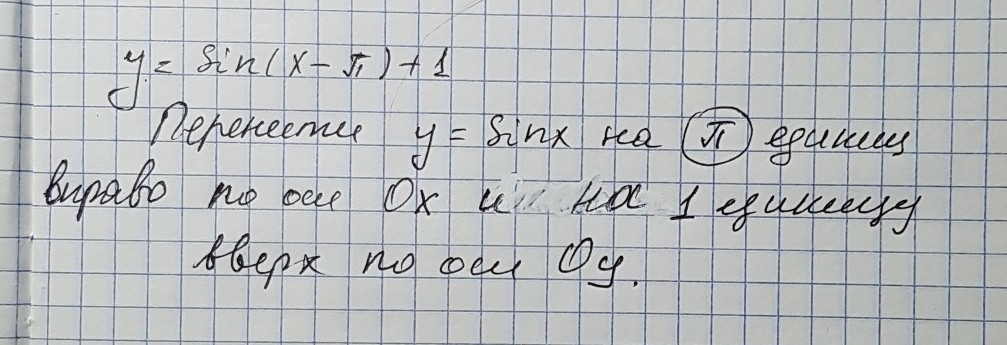 y = sin(x - π) + 1
Перенести y = sinx на π единиц
вправо по оси Ox и на 1 единицу
вверх по оси Oy.